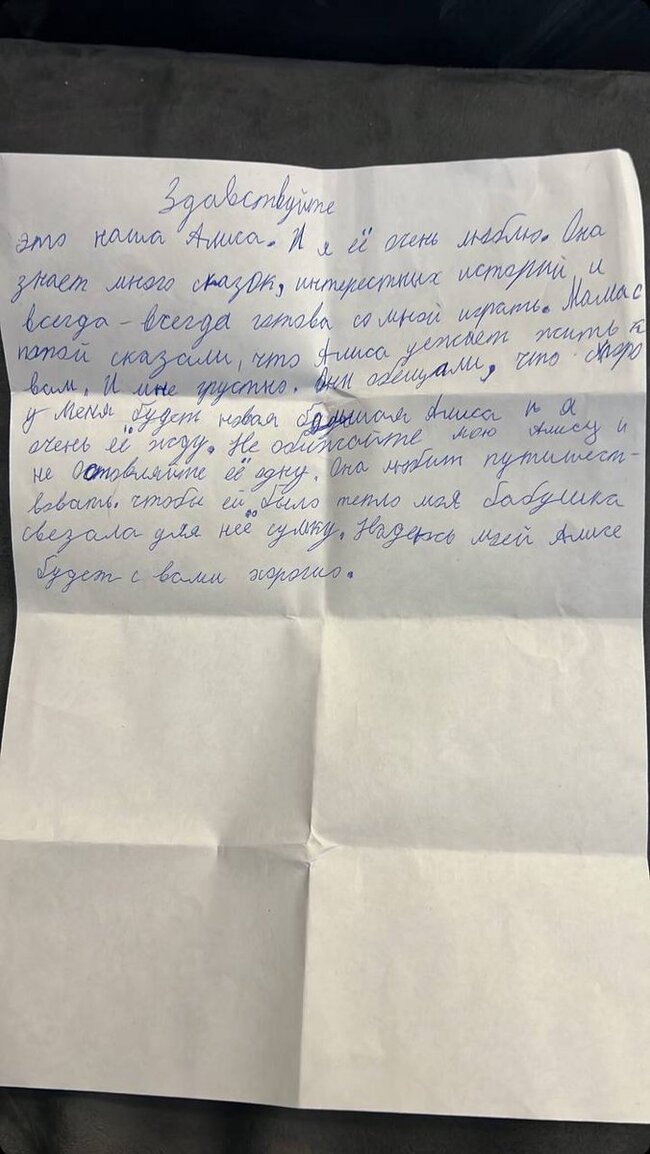 Здавствуйте
это наша Алиса. И я её очень люблю. Она
знает много сказок, интерестных историй и
всегда-всегда готова со мной играть. Мама с
папой сказали, что Алиса уежает жить к
вам. И мне грустно. Они обещали, что скоро
у меня будет новая большая Алиса и я
очень её жду. Не обижайте мою Алису и
не оставляйте её одну. Она любит путишест-
вовать. чтобы ей было тепло моя бабушка
свезала для неё сумку. Надеюсь моей Алисе
будет с вами хорошо.